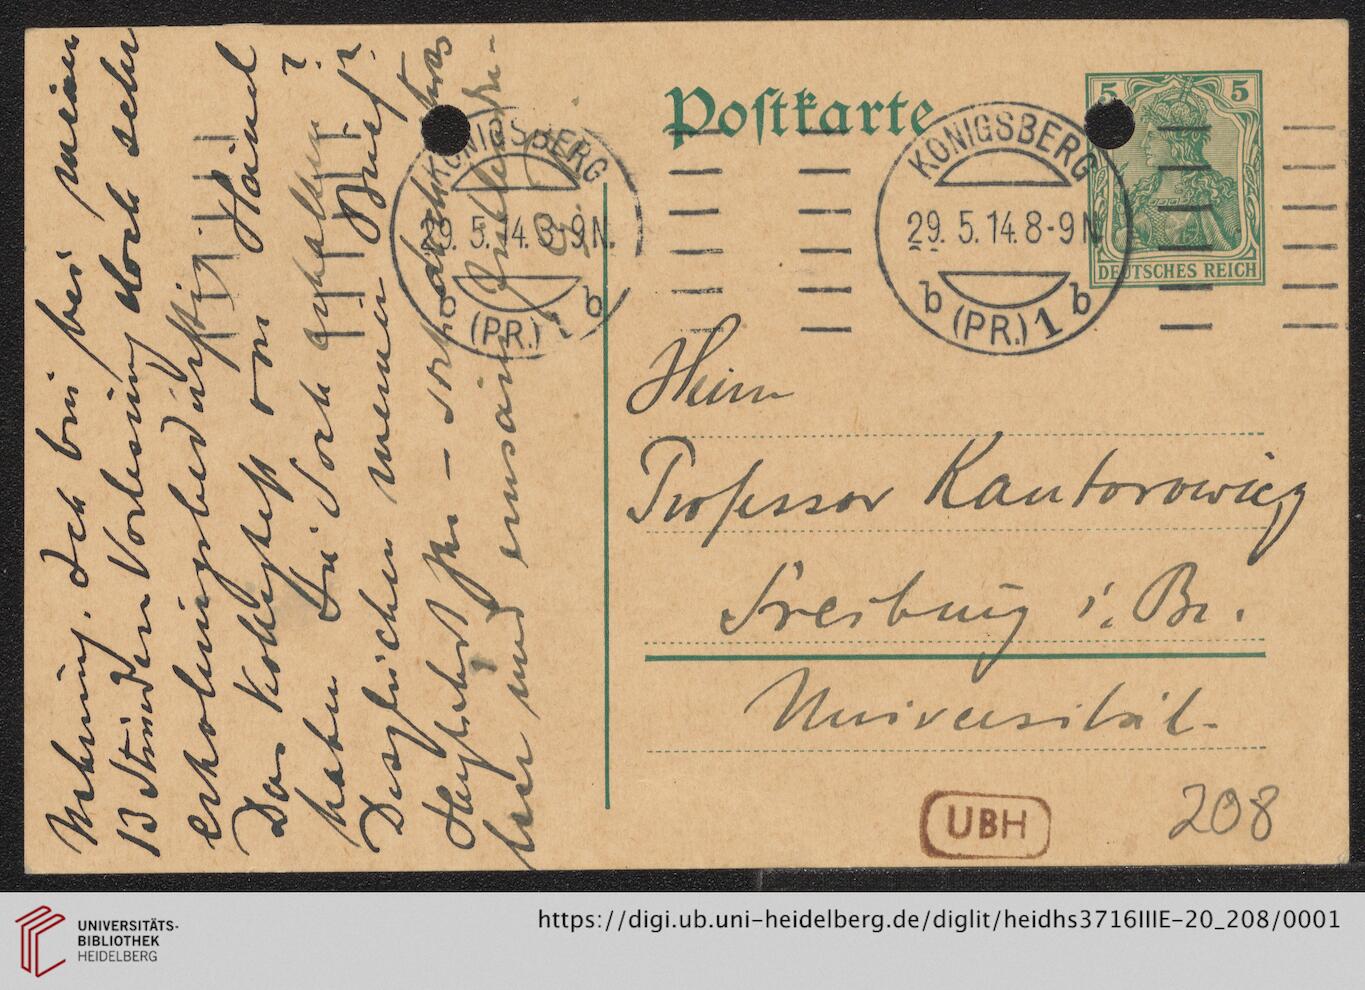 Meinung. Ich bin bei meinen
13 Stunden Vorlesung doch sehr
erholungsbedürftig.
Das Kolleghft von Hänel
haben Sie doch erhalten?
Desgleichen meinen Brief?
Herzlichst Ihr – sich etwas
hier und einsam
Postkarte
5 5
DEUTSCHES REICH
KÖNIGSBERG
29. 5. 14. 8-9 N.
b (PR.) 1 b
KÖNIGSBERG
29. 5. 14. 8-9 N.
b (PR.) 1 b
Herrn
Professor Kantorowicz
Freiburg i. Br.
Universität.
UBH
208
UNIVERSITÄTS-
BIBLIOTHEK
HEIDELBERG
https://digi.ub.uni-heidelberg.de/diglit/heidhs3716IIIE-20_208/0001